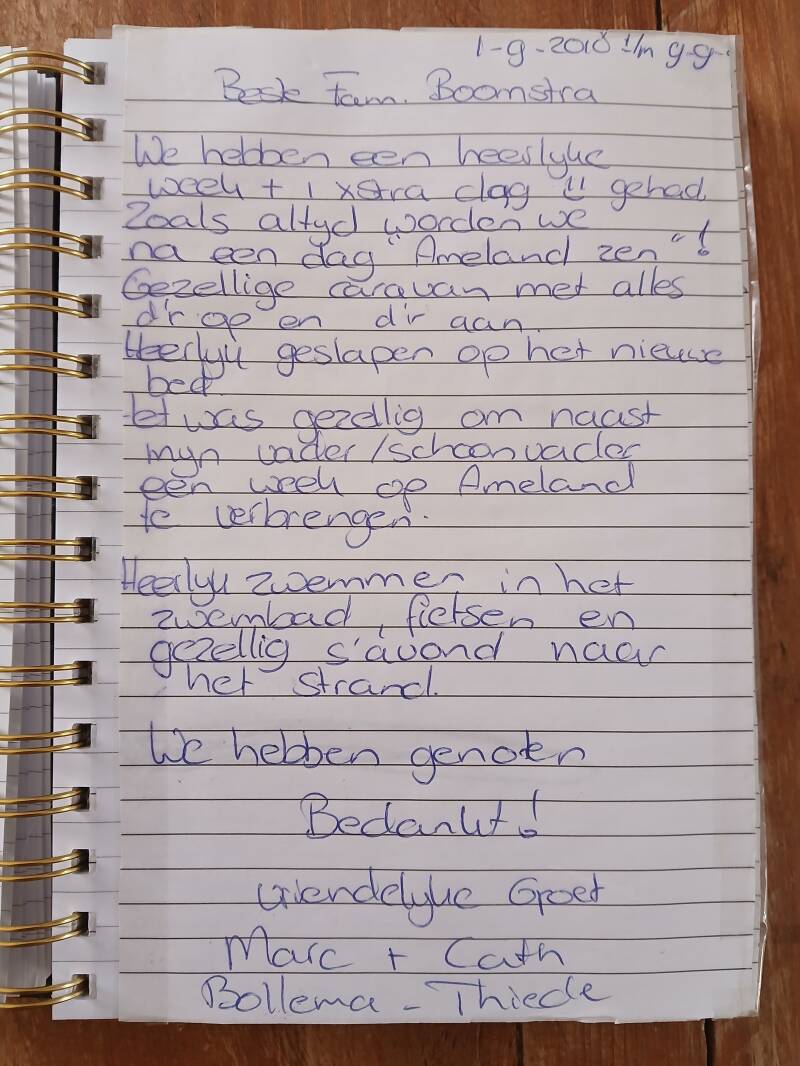 1-9-2018 t/m 9-9-
Beste Fam. Boomstra
We hebben een heerlyke
week + 1 xstra dag !! gehad
Zoals altyd worden we
na een dag "Ameland zen"!
Gezellige caravan met alles
d'r op en d'r aan.
Heerlyk geslapen op het nieuwe
bed.
Het was gezellig om naast
myn vader/schoonvader
een week op Ameland
te verbrengen.
Heerlyk zwemmen in het
zwembad, fietsen en
gezellig s'avond naar
het strand.
We hebben genoten
Bedankt!
vriendelyke Groet
Marc + Cath
Bollema - Thiede